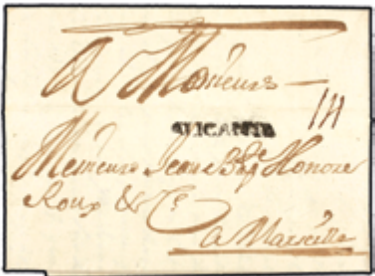 A Monsieurs
ALICANTE
Messieurs Jean Bte Honore
Roux & Ce
a Marseille